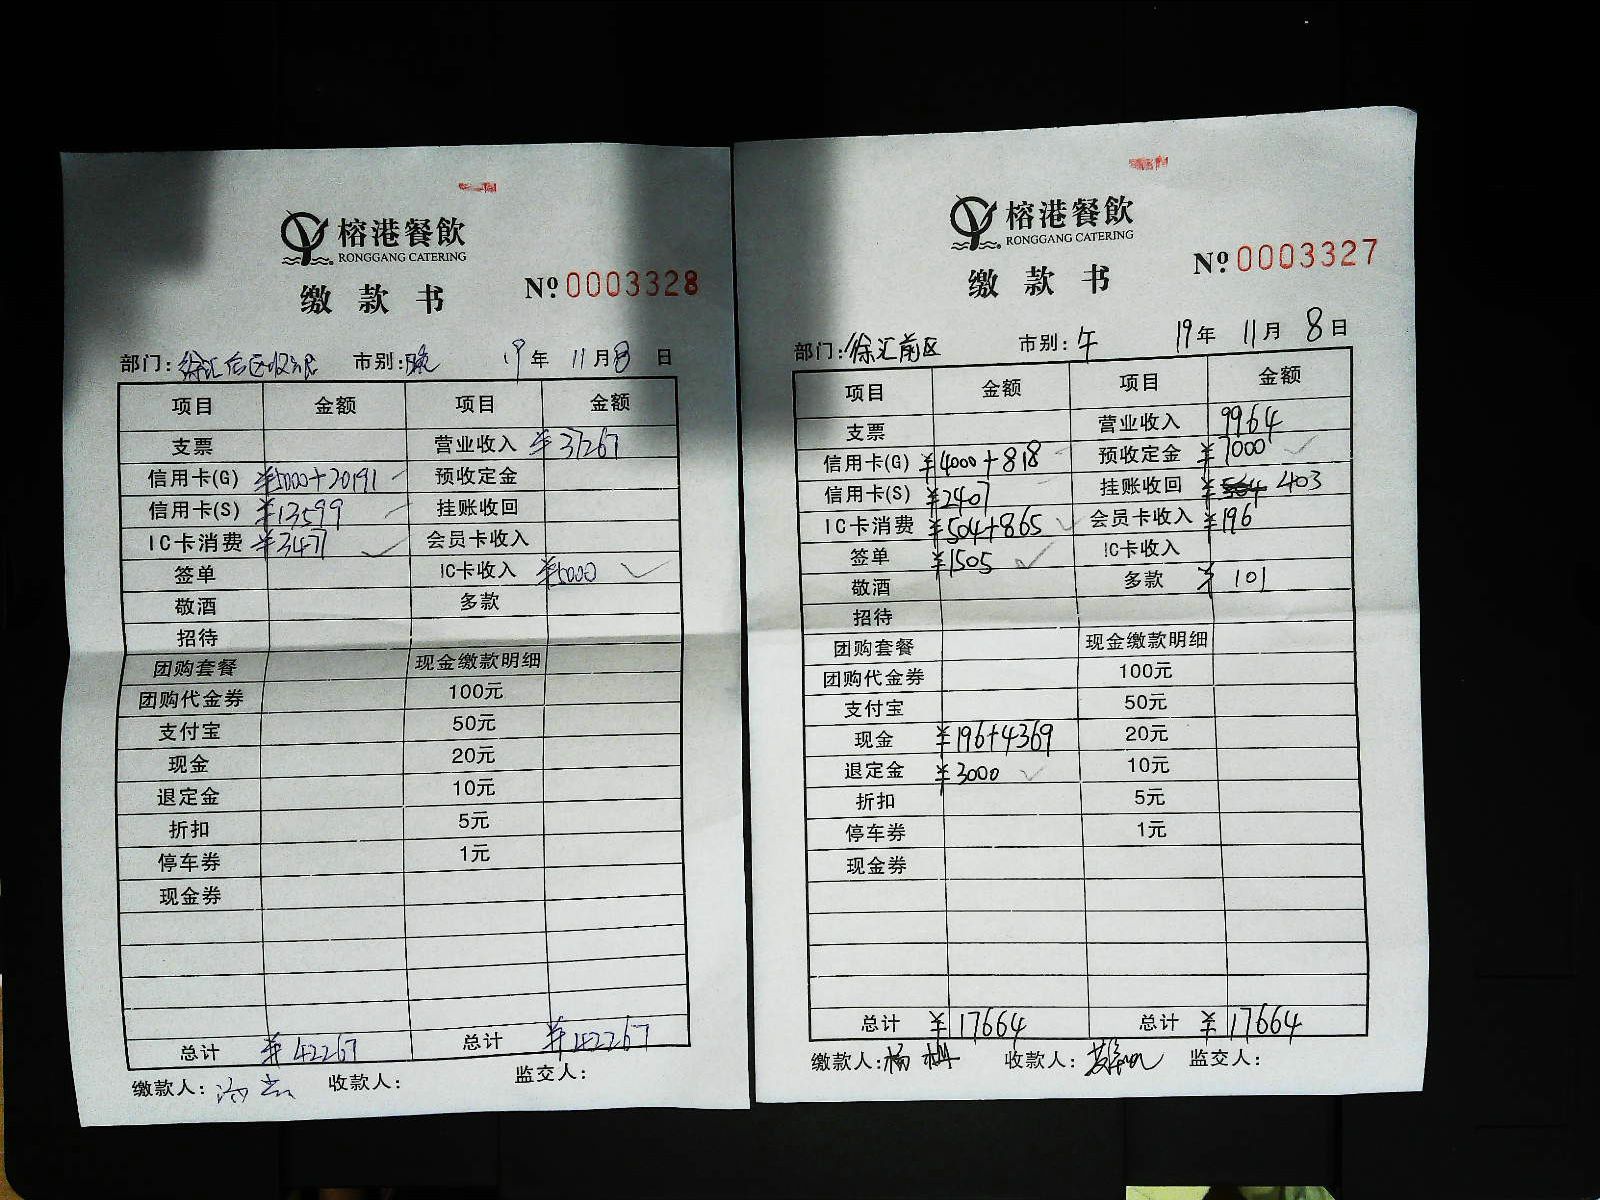 榕港餐飲
RONGGANG CATERING
缴款书
№ 0003328
部门: 徐汇后区收银 市别: 晚 19年 11月 8日
项目 金额 项目 金额
支票 营业收入 ¥37267
信用卡(G) ¥5000+20191 预收定金
信用卡(S) ¥13599 挂账收回
IC卡消费 ¥3477 会员卡收入
签单 IC卡收入 ¥5000
敬酒 多款
招待
团购套餐 现金缴款明细
团购代金券 100元
支付宝 50元
现金 20元
退定金 10元
折扣 5元
停车券 1元
现金券
总计 ¥42267 总计 ¥42267
缴款人: 收款人: 监交人:
榕港餐飲
RONGGANG CATERING
缴款书
№ 0003327
部门: 徐汇前区 市别: 午 19年 11月 8日
项目 金额 项目 金额
支票 营业收入 9964
信用卡(G) ¥4000+818 预收定金 ¥7000
信用卡(S) ¥2407 挂账收回 ¥ 403
IC卡消费 ¥504+865 会员卡收入 ¥196
签单 ¥1505 IC卡收入
敬酒 多款 ¥ 101
招待
团购套餐 现金缴款明细
团购代金券 100元
支付宝 50元
现金 ¥196+4369 20元
退定金 ¥3000 10元
折扣 5元
停车券 1元
现金券
总计 ¥17664 总计 ¥17664
缴款人: 杨 收款人: 监交人: